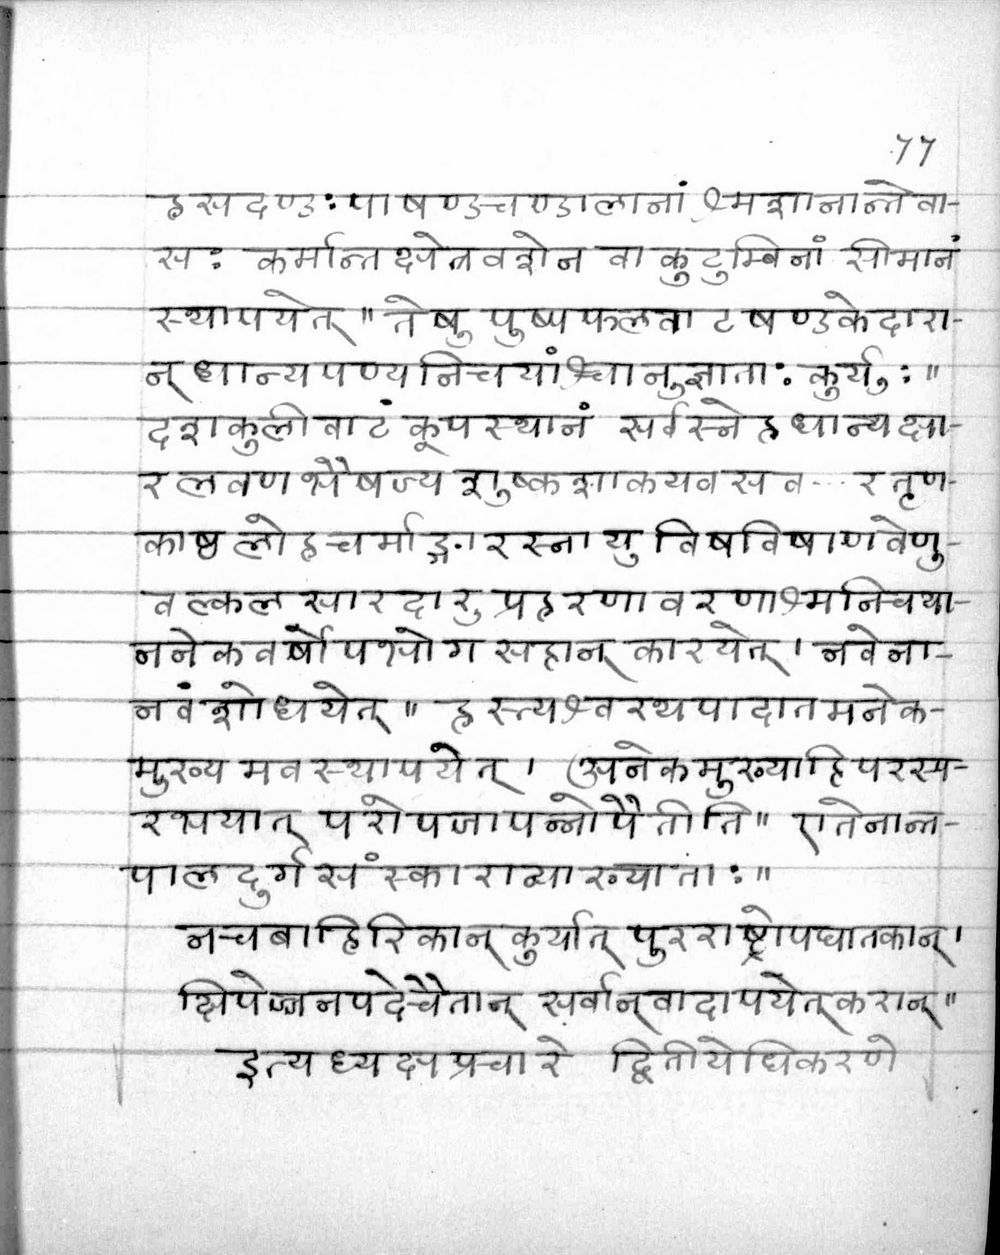 77
हसदण्डः पाषण्डचण्डालानां श्मशानान्ते वा-
सः कर्मान्तक्षेत्रवशेन वा कुटुम्बिनां सीमानं
स्थापयेत् ॥ तेषु पुष्पफलवाटषण्डकेदारा-
न् धान्यपण्यनिचयांश्चानुज्ञाताः कुर्युः ॥
दशकुलीवाटं कूपस्थानं सर्वस्नेहधान्यक्षा-
रलवणभैषज्यशुष्कशाकयवसव...रतृण-
काष्ठलोहचर्माङ्गारस्नायुविषविषाणवेणु-
वल्कलसारदारुप्रहरणावरणाश्मनिचया-
ननेकवर्षोपभोगसहान् कारयेत् । नवेना-
नवं शोधयेत् ॥ हस्त्यश्वरथपादातमनेक-
मुख्यमवस्थापयेत् । अनेकमुख्या हि परस्प-
रभयात् परोपजापन्नोपैतीति ॥ एतेनान्त-
पालदुर्गसंस्कारा व्याख्याताः ॥
नच बाहिरिकान् कुर्यात् पुरराष्ट्रोपघातकान् ।
क्षिपेज्जनपदे चैतान् सर्वान् वा दापयेत् करान् ॥
इत्यध्यक्षप्रचारे द्वितीयेधिकरणे